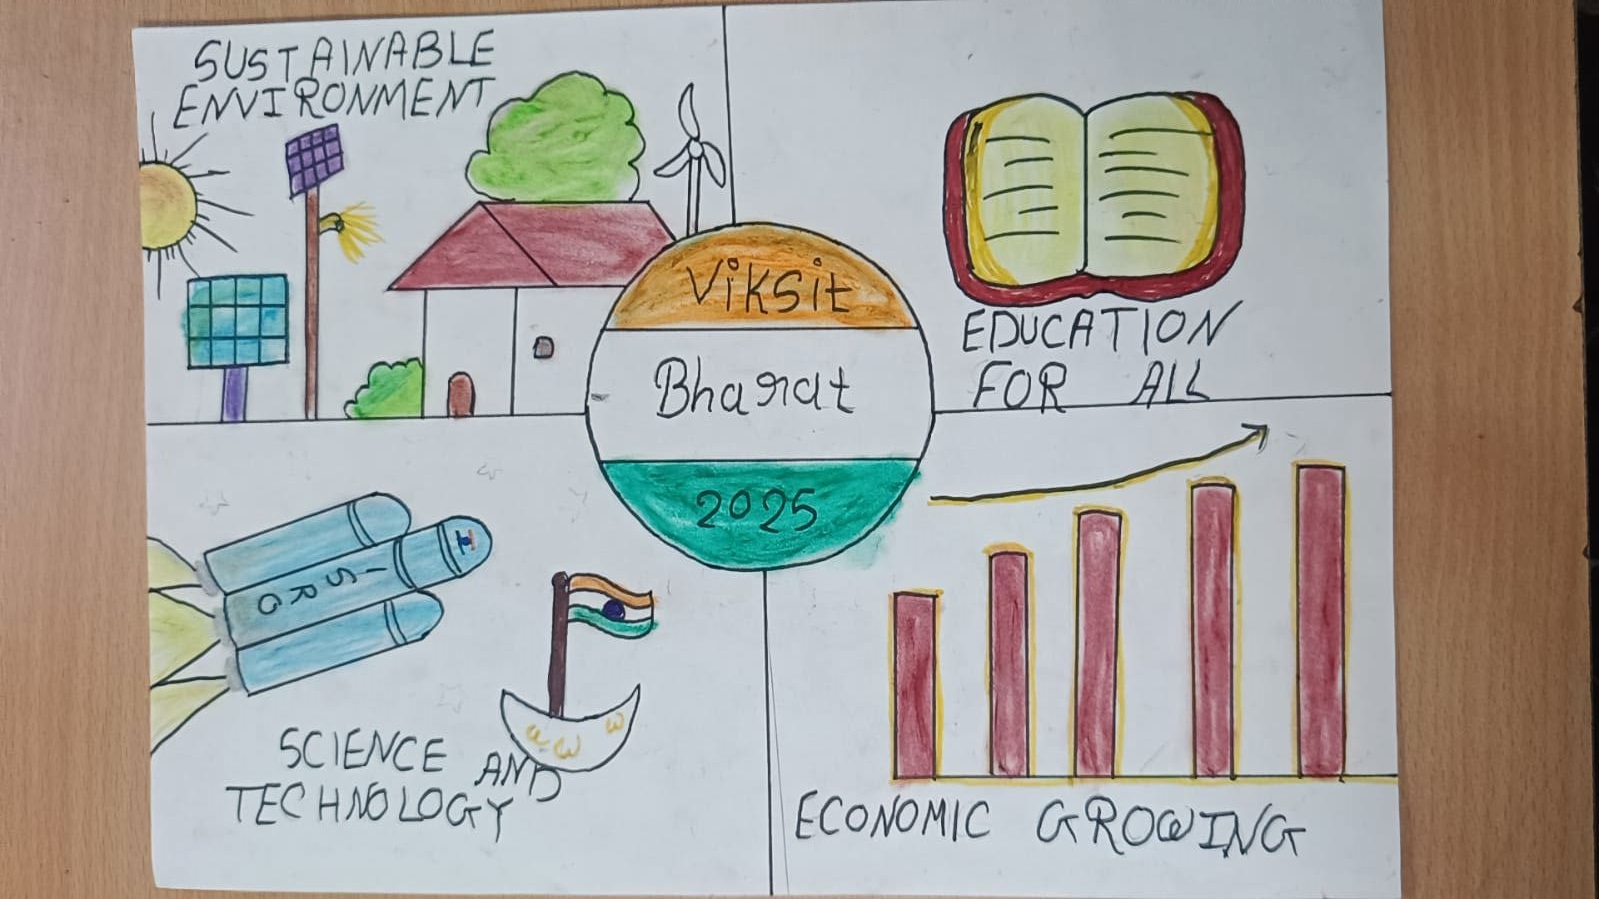 SUSTAINABLE
ENVIRONMENT
EDUCATION
FOR ALL
Viksit
Bharat
2025
ISRO
SCIENCE AND
TECHNOLOGY
ECONOMIC GROWING